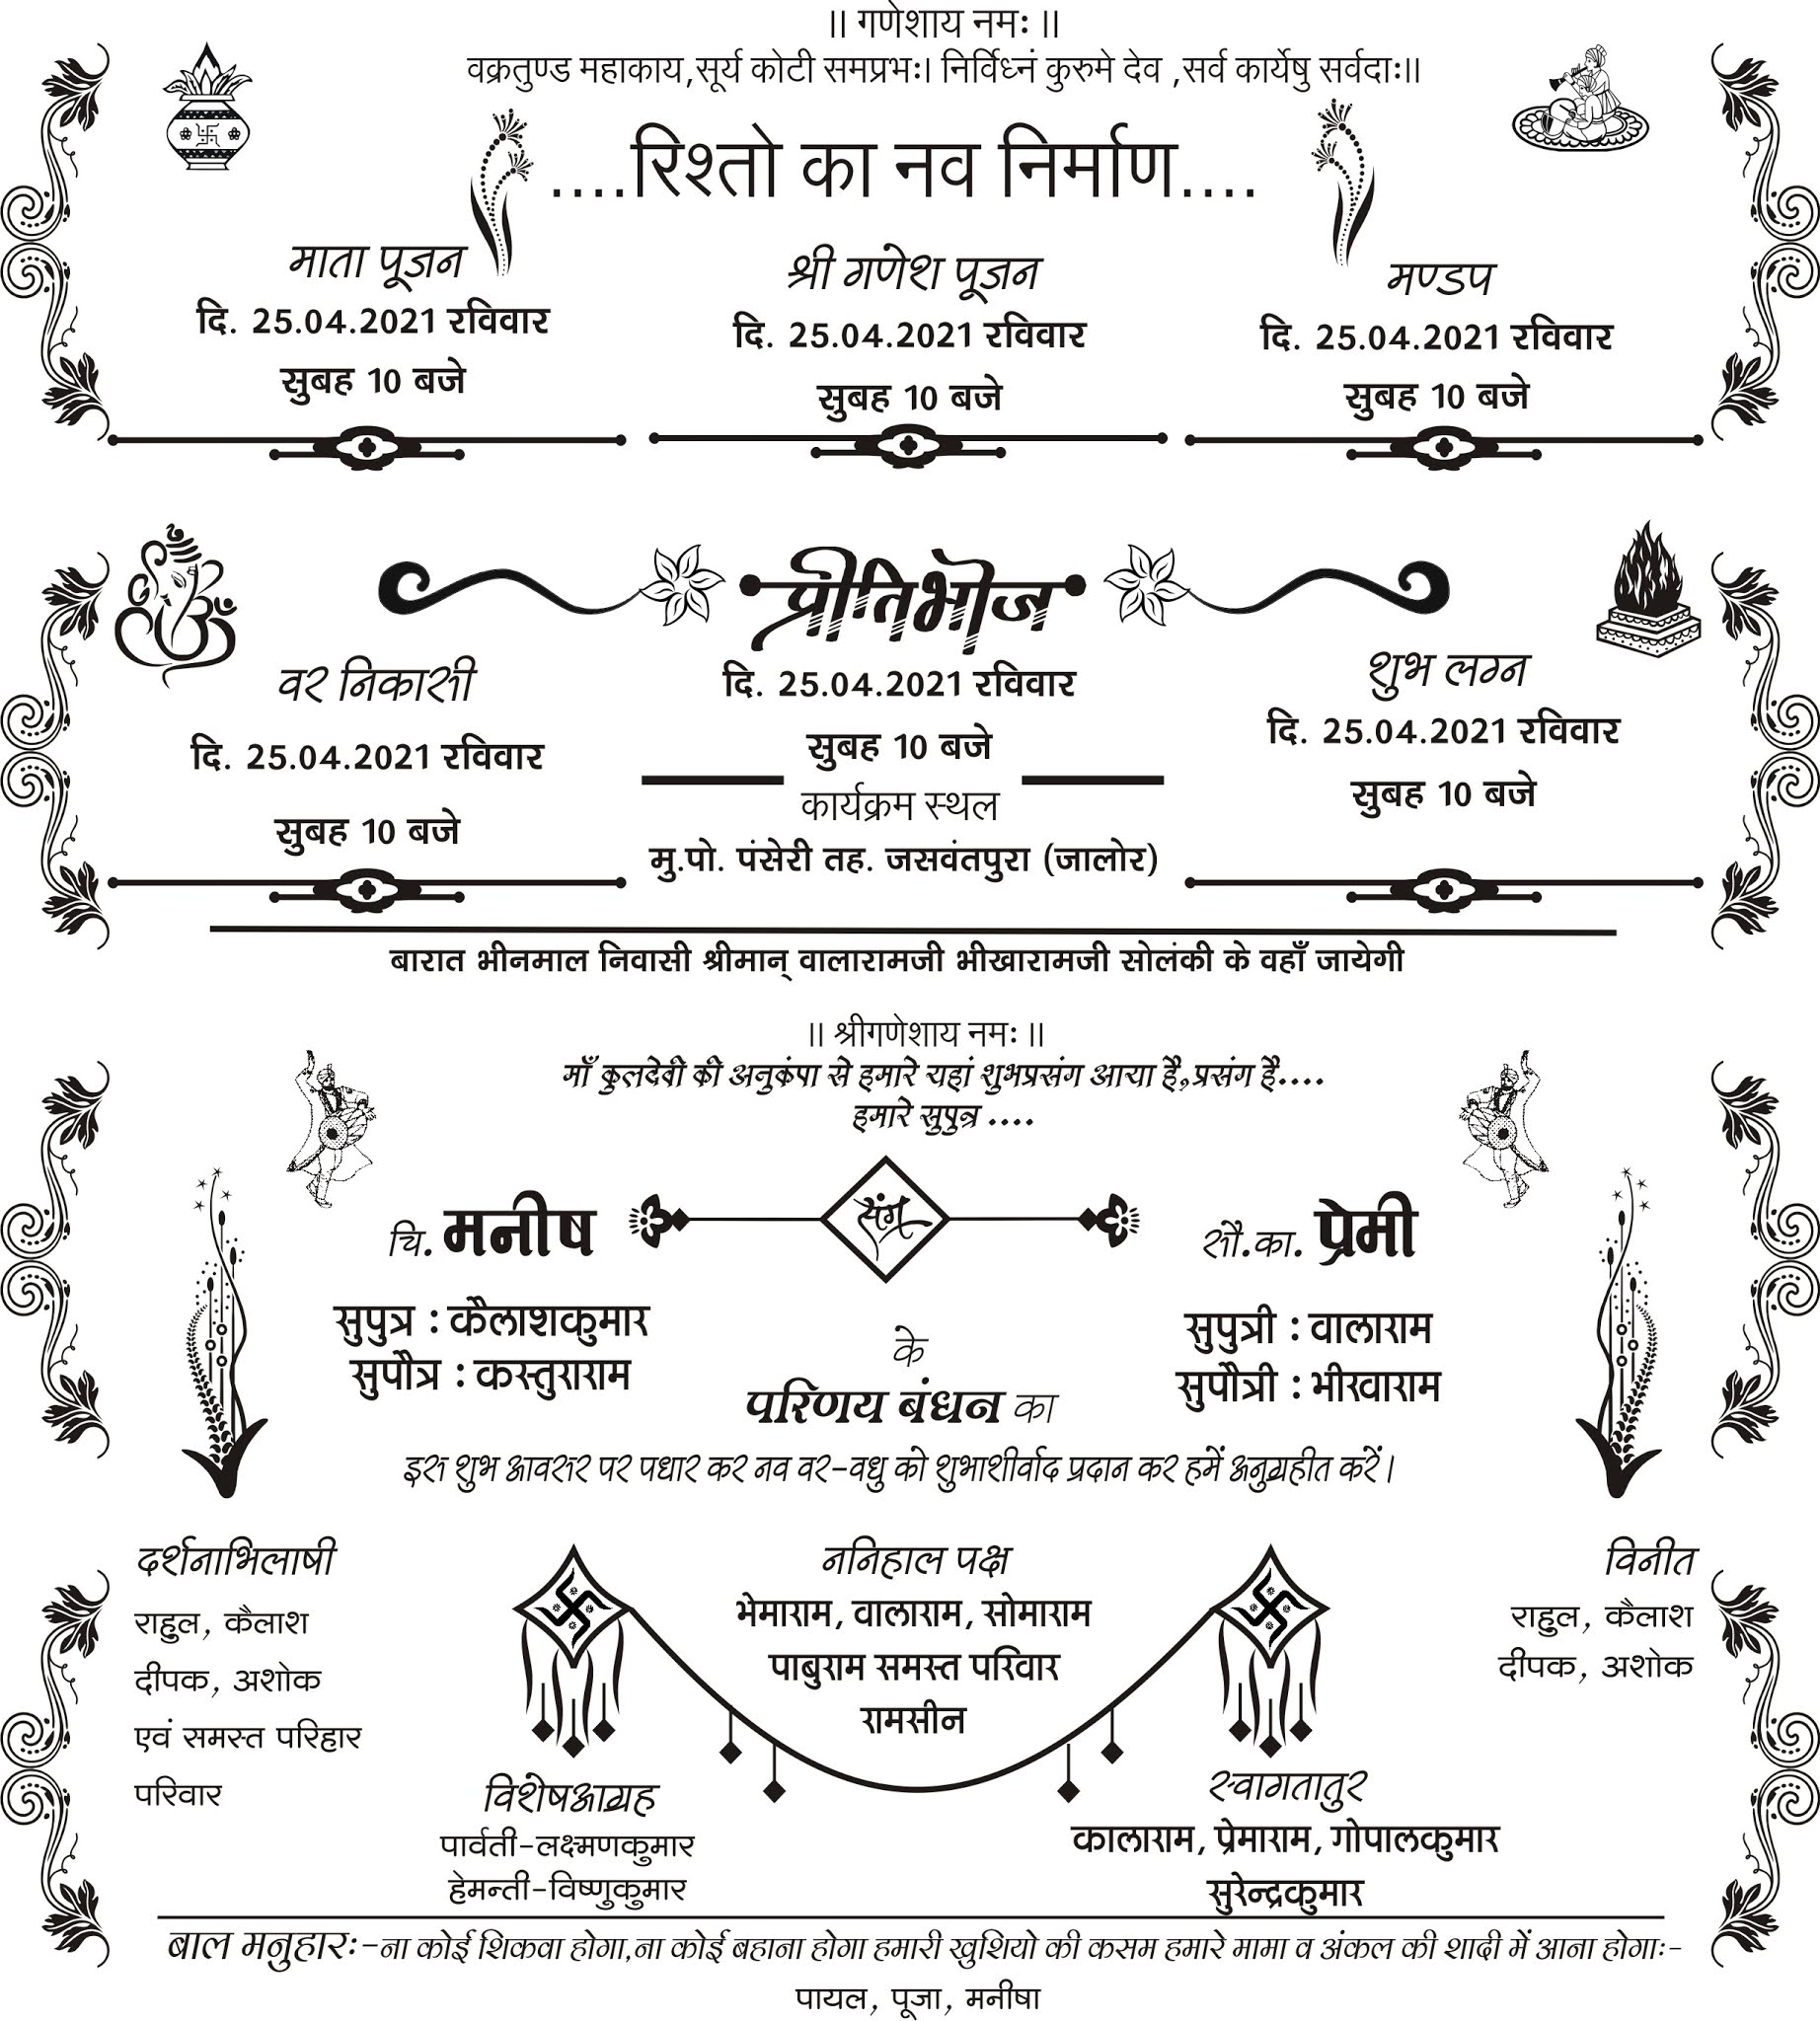 ॥ गणेशाय नमः ॥
वक्रतुण्ड महाकाय,सूर्य कोटी समप्रभः। निर्विध्नं कुरुमे देव ,सर्व कार्येषु सर्वदाः॥
....रिश्तो का नव निर्माण....
माता पूजन
दि. 25.04.2021 रविवार
सुबह 10 बजे
श्री गणेश पूजन
दि. 25.04.2021 रविवार
सुबह 10 बजे
मण्डप
दि. 25.04.2021 रविवार
सुबह 10 बजे
वर निकासी
दि. 25.04.2021 रविवार
सुबह 10 बजे
प्रीतिभोज
दि. 25.04.2021 रविवार
सुबह 10 बजे
कार्यक्रम स्थल
मु.पो. पंसेरी तह. जसवंतपुरा (जालोर)
शुभ लग्न
दि. 25.04.2021 रविवार
सुबह 10 बजे
बारात भीनमाल निवासी श्रीमान् वालारामजी भीखारामजी सोलंकी के वहाँ जायेगी
॥ श्रीगणेशाय नमः ॥
माँ कुलदेवी की अनुकंपा से हमारे यहां शुभप्रसंग आया है,प्रसंग है....
हमारे सुपुत्र ....
चि. मनीष
संग
सौ.का. प्रेमी
सुपुत्र : कैलाशकुमार
सुपौत्र : कस्तुराराम
सुपुत्री : वालाराम
सुपौत्री : भीखाराम
के
परिणय बंधन का
इस शुभ आवसर पर पधार कर नव वर-वधु को शुभाशीर्वाद प्रदान कर हमें अनुग्रहीत करें।
दर्शनाभिलाषी
राहुल, कैलाश
दीपक, अशोक
एवं समस्त परिहार
परिवार
ननिहाल पक्ष
भेमाराम, वालाराम, सोमाराम
पाबुराम समस्त परिवार
रामसीन
विनीत
राहुल, कैलाश
दीपक, अशोक
विशेषआग्रह
पार्वती-लक्ष्मणकुमार
हेमन्ती-विष्णुकुमार
स्वागतातुर
कालाराम, प्रेमाराम, गोपालकुमार
सुरेन्द्रकुमार
बाल मनुहारः-ना कोई शिकवा होगा,ना कोई बहाना होगा हमारी खुशियो की कसम हमारे मामा व अंकल की शादी में आना होगाः-
पायल, पूजा, मनीषा